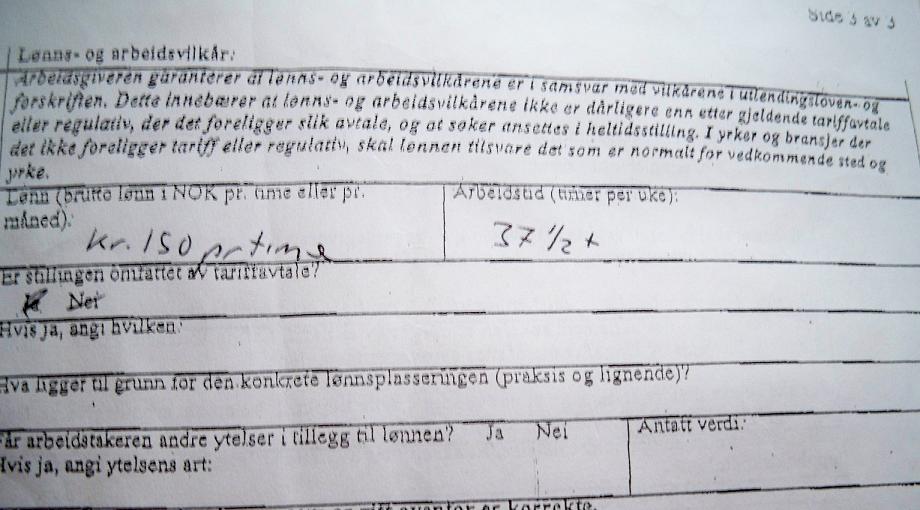 Side 3 av 3
Lønns- og arbeidsvilkår:
Arbeidsgiveren garanterer at lønns- og arbeidsvilkårene er i samsvar med vilkårene i utlendingsloven- og
forskriften. Dette innebærer at lønns- og arbeidsvilkårene ikke er dårligere enn etter gjeldende tariffavtale
eller regulativ, der det foreligger slik avtale, og at søker ansettes i heltidsstilling. I yrker og bransjer der
det ikke foreligger tariff eller regulativ, skal lønnen tilsvare det som er normalt for vedkommende sted og
yrke.
Lønn (brutto lønn i NOK pr. time eller pr.
måned):
kr. 150 pr time
Arbeidstid (timer per uke):
37 1/2 t
Er stillingen omfattet av tariffavtale?
Nei
Hvis ja, angi hvilken:
Hva ligger til grunn for den konkrete lønnsplasseringen (praksis og lignende)?
Får arbeidstakeren andre ytelser i tillegg til lønnen? Ja Nei
Hvis ja, angi ytelsens art:
Antatt verdi: